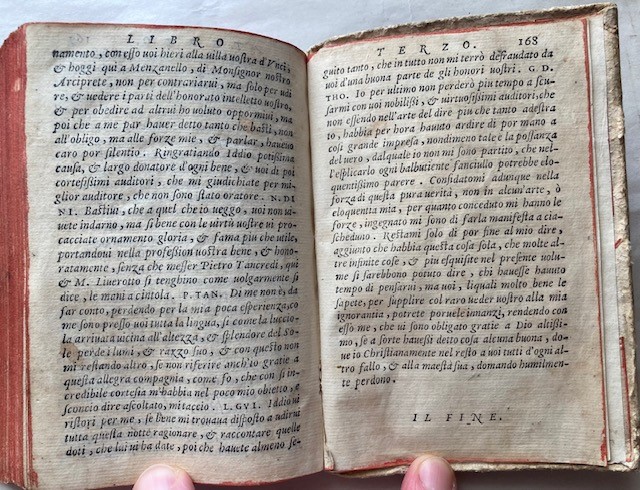 LIBRO
namento, con esso uoi hieri alla uilla uostra d'Vnci,
& hoggi qui a Menzanello, di Monsignor nostro
Arciprete, non per contrariarui, ma solo per udi
re, & uedere i parti dell'honorato intelletto uostro,
& per obedire ad altrui ho uoluto oppormui, ma
poi che a me par hauer detto tanto che basti, non
all'obligo, ma alle forze mie, & parlar, haueno
caro por silentio. Ringratiando Iddio potissima
causa, & largo donatore d'ogni bene, & uoi di poi
cortesissimi auditori, che mi giudichiate per mi-
glior auditore, che non sono stato oratore. N. DI
NI. Bastiui, che a quel che io ueggo, uoi non ua-
uete indarno, ma si bene con le uirtù uostre ui pro-
cacciate ornamento gloria, & fama piu che utile,
portandoui nella profession uostra bene, & hono-
ratamente, senza che messer Pietro Tancredi, qui
& M. Liuerotto si tenghino come uolgarmente si
dice, le mani a cintola. P. TAN. Di me non è, da
far conto, perdendo per la mia poca esperienza, co
me sono presso uoi tutta la lingua, si come la luccio-
la arriuata uicina all'altezza, & splendore del So-
le perde i lumi, & razzo suo, & con questo non
mi restando altro, se non riferire anch'io gratie a
questa allegra compagnia, come fo, che con si in-
credibile cortesia m'habbia nel poco mio obietto, &
sconcio dire ascoltato, mi taccio. L. GVI. Iddio ui
ristori per me, se bene mi trouaua disposto a udirui
tutta questa notte ragionare, & raccontare quelle
doti, che lui ui ha date, poi che hauete almeno se-
TERZO. 168
guito tanto, che in tutto non mi terrò defraudato da
uoi d'una buona parte de gli honori uostri. G. D.
THO. Io per ultimo non perderò piu tempo a scu-
sarmi con uoi nobilissi, & uirtuosissimi auditori, che
non essendo nell'arte del dire piu che tanto adestra
to, habbia per hora hauuto ardire di por mano a
cosi grande impresa, nondimeno tale è la possanza
del uero, dal quale io non mi sono partito, che nel-
l'esplicarlo ogni balbutiente fanciullo potrebbe elo-
quentissimo parere. Confidatomi adunque nella
forza di questa pura uerità, non in alcun'arte, ò
eloquentia mia, per quanto conceduto mi hanno le
forze, ingegnato mi sono di farla manifesta a cia-
scheduno. Restami solo di por fine al mio dire,
aggiunto che habbia questa cosa sola, che molte al-
tre infinite cose, & piu esquisite nel presente uolu-
me si sarebbono potuto dire, chi hauesse hauuto
tempo di pensarui, ma uoi, li quali molto bene le
sapete, per supplire col raro ueder uostro alla mia
ignorantia, potrete poruele innanzi, rendendo con
esso me, che ui sono obligato gratie a Dio altissi-
mo, se a sorte hauessi detto cosa alcuna buona, do-
ue io Christianamente nel resto a uoi tutti d'ogni al-
tro fallo, & alla maestà sua, domando humilmen-
te perdono.
IL FINE.